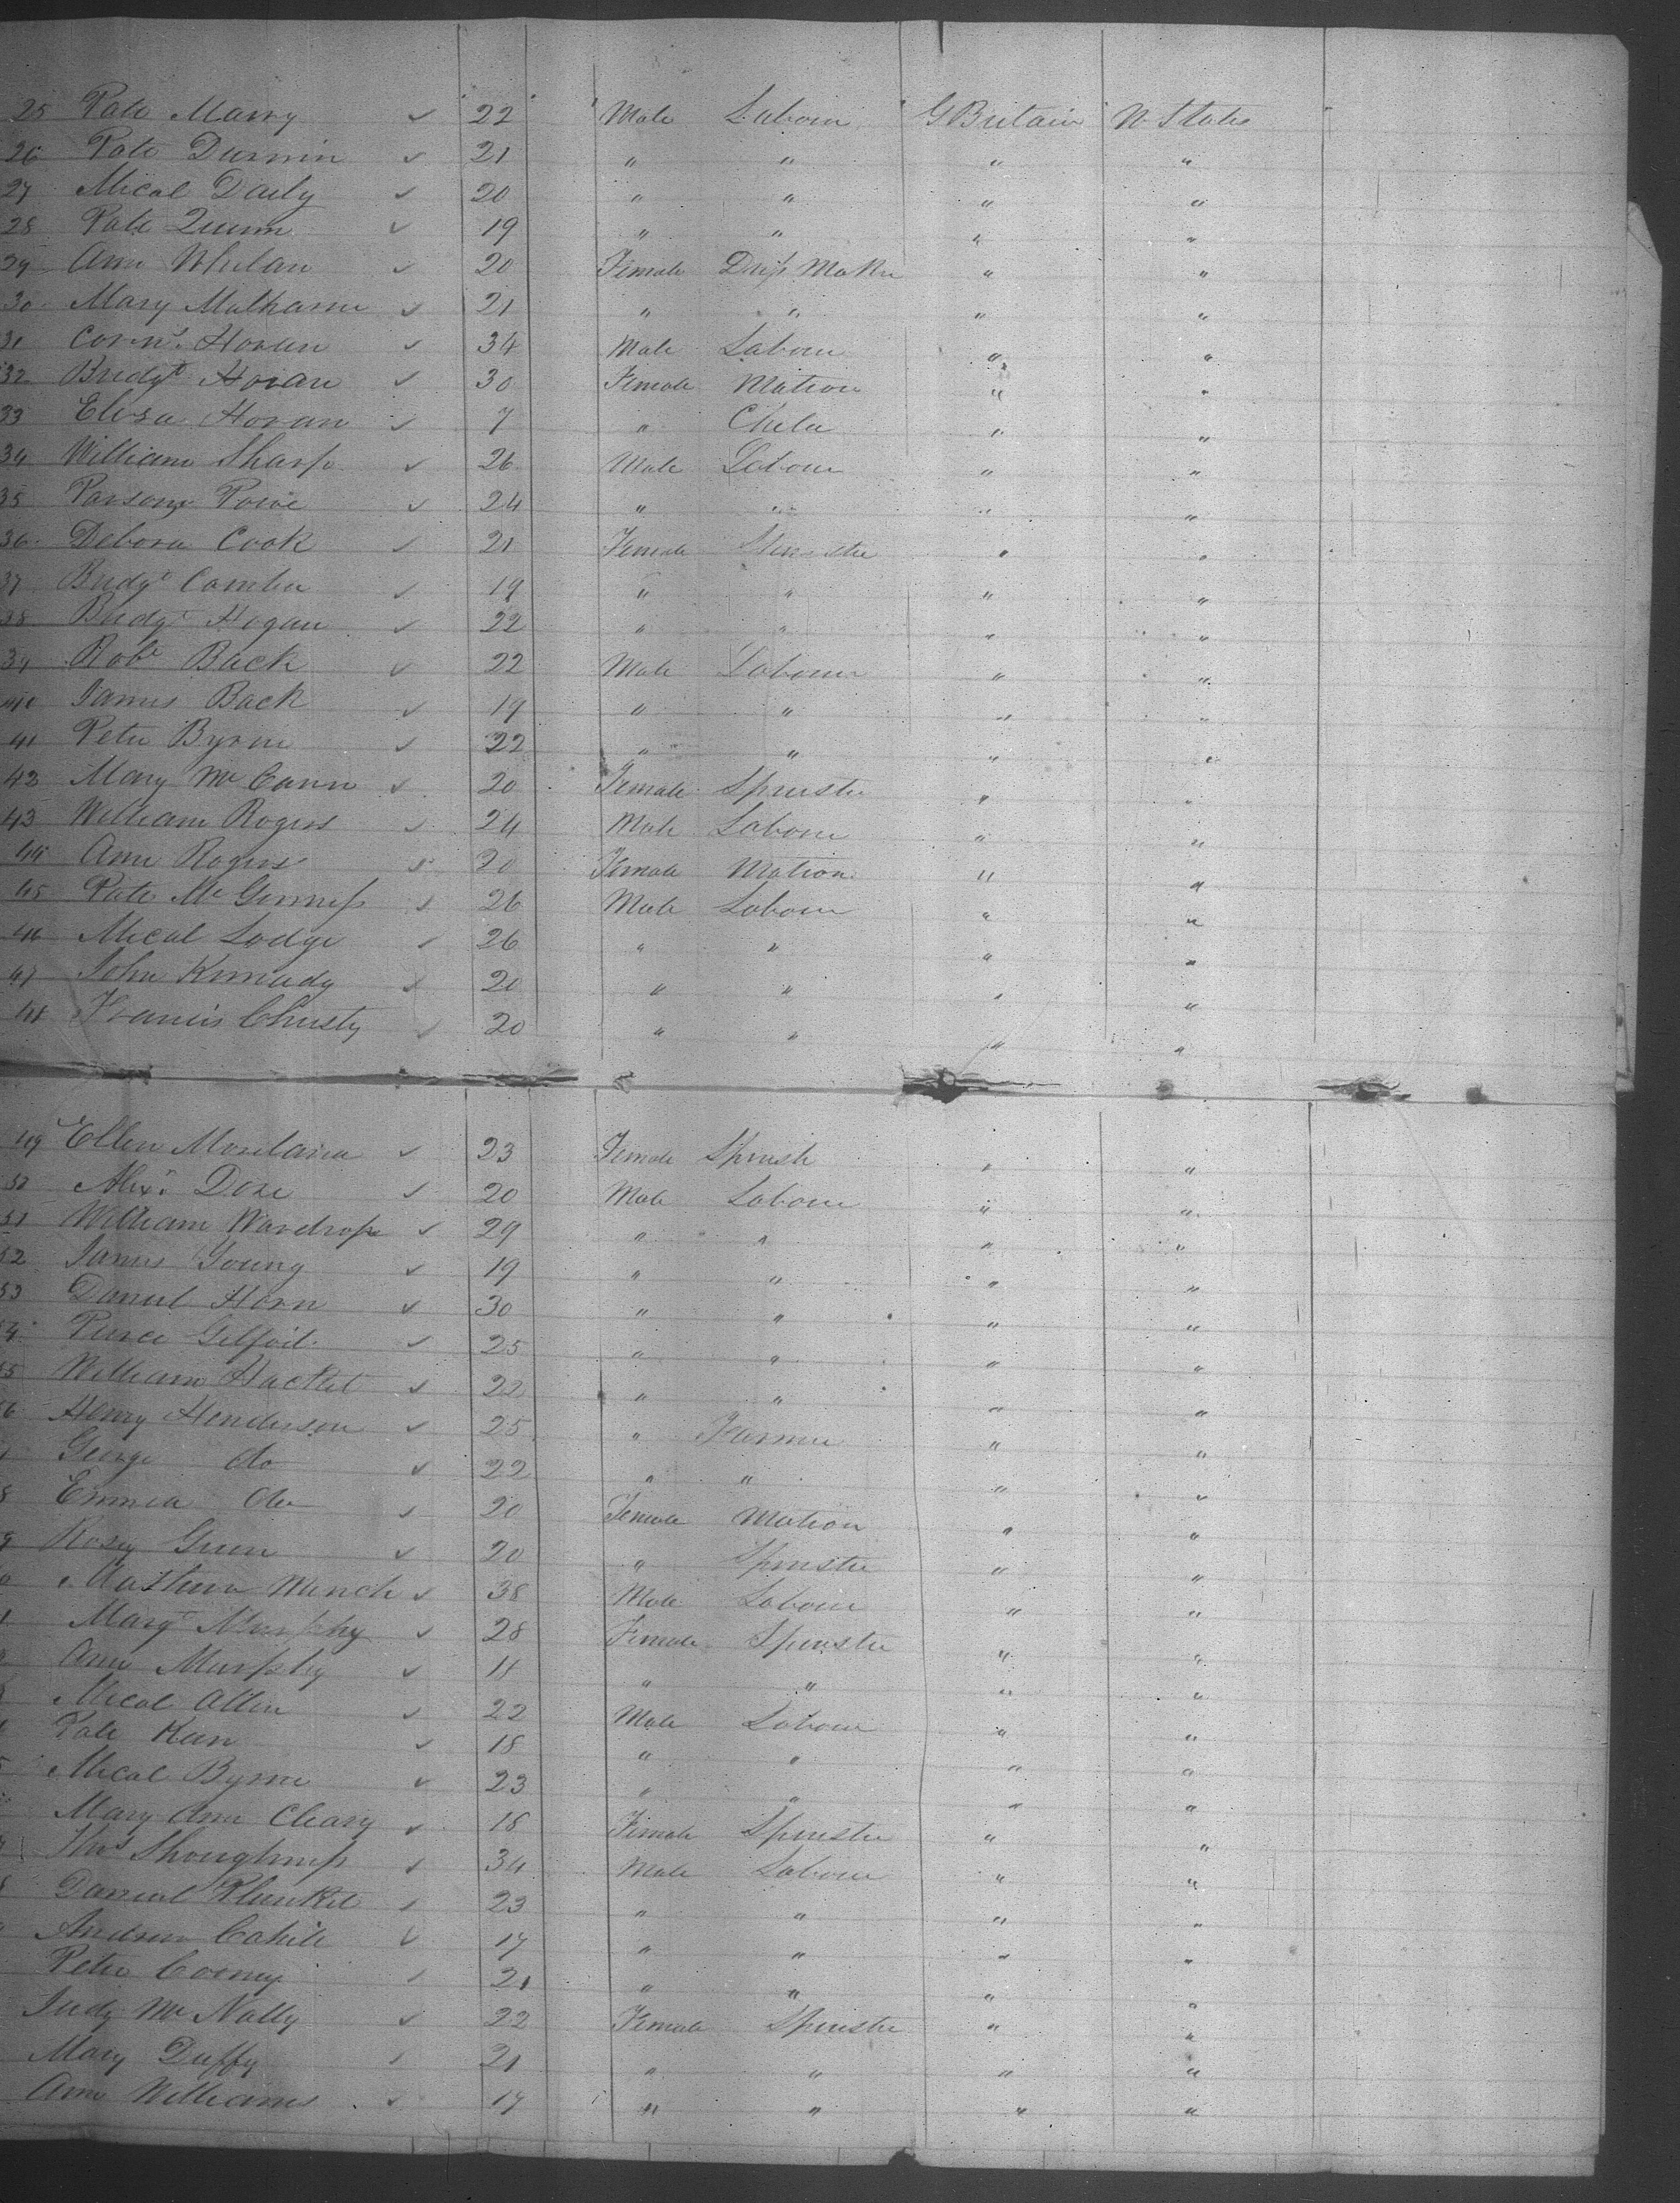 25 Patk Marry 22 Male Labour G Britain U States
26 Patk Durnin 21 " " " "
27 Mical Daily 20 " " " "
28 Patk Quinn 19 " " " "
29 Ann Whelan 20 Female Dress Maker " "
30 Mary 21 " " " "
31 Corns. Horan 34 Male Labour " "
32 Bridgt Horan 30 Female Matron " "
33 Eliza Horan 7 " Child " "
34 William Sharp 26 Male Labour " "
35 Parsons 24 " " " "
36 Debora Cook 21 Female Spinster " "
37 Bridgt 19 " " " "
38 Bridgt Hogan 22 " " " "
39 Robt Back 22 Male Labour " "
40 James Back 19 " " " "
41 Peter Byrne 22 " " " "
42 Mary McCann 20 Female Spinster " "
43 William Rogers 24 Male Labour " "
44 Ann Rogers 20 Female Matron " "
45 Patk McGinness 26 Male Labour " "
46 Mical Lodge 26 " " " "
47 John Kennedy 20 " " " "
48 Francis Christy 20 " " " "
49 Ellen 23 Female Spinster " "
50 Alexr. 20 Male Labour " "
51 William Wardrop 29 " " " "
52 James Young 19 " " " "
53 Daniel Horn 30 " " " "
54 Pierce Gilfoil 25 " " " "
55 William Hacket 22 " " " "
56 Henry Henderson 25 " Farmer " "
George do 22 " " " "
8 Emma do 20 Female Matron " "
9 Rosy Green 20 " Spinster " "
Minch 38 Male Labour " "
Margt Murphy 28 Female Spinster " "
Ann Murphy " " " "
Mical Allen 22 Male Labour " "
Patk 18 " " " "
Mical Byrne 23 " " " "
Mary Ann Cleary 18 Female Spinster " "
Thos 34 Male Labour " "
Daniel Plunket 23 " " " "
Andrew Cahill 17 " " " "
Peter Cooney 21 " " " "
Judy McNally 22 Female Spinster " "
Mary Duffy 21 " " " "
Ann Williams 17 " " " "